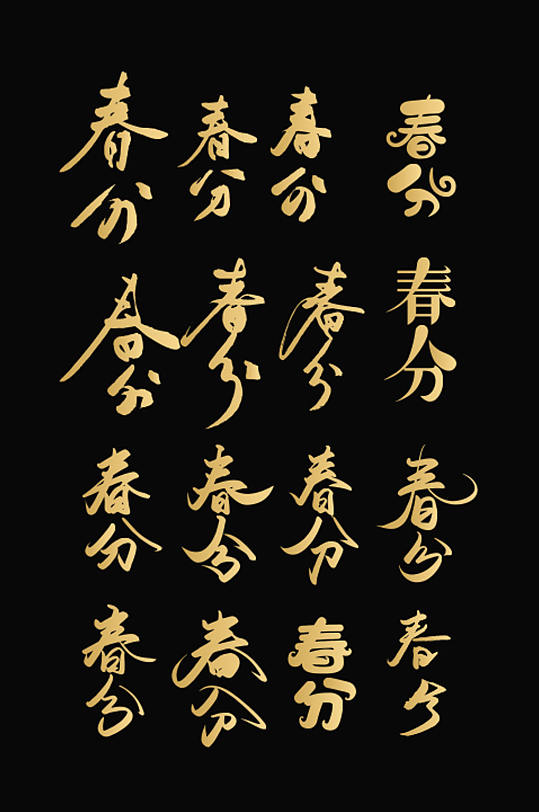 春分 春分 春分 春分
春分 春分 春分 春分
春分 春分 春分 春分
春分 春分 春分 春分